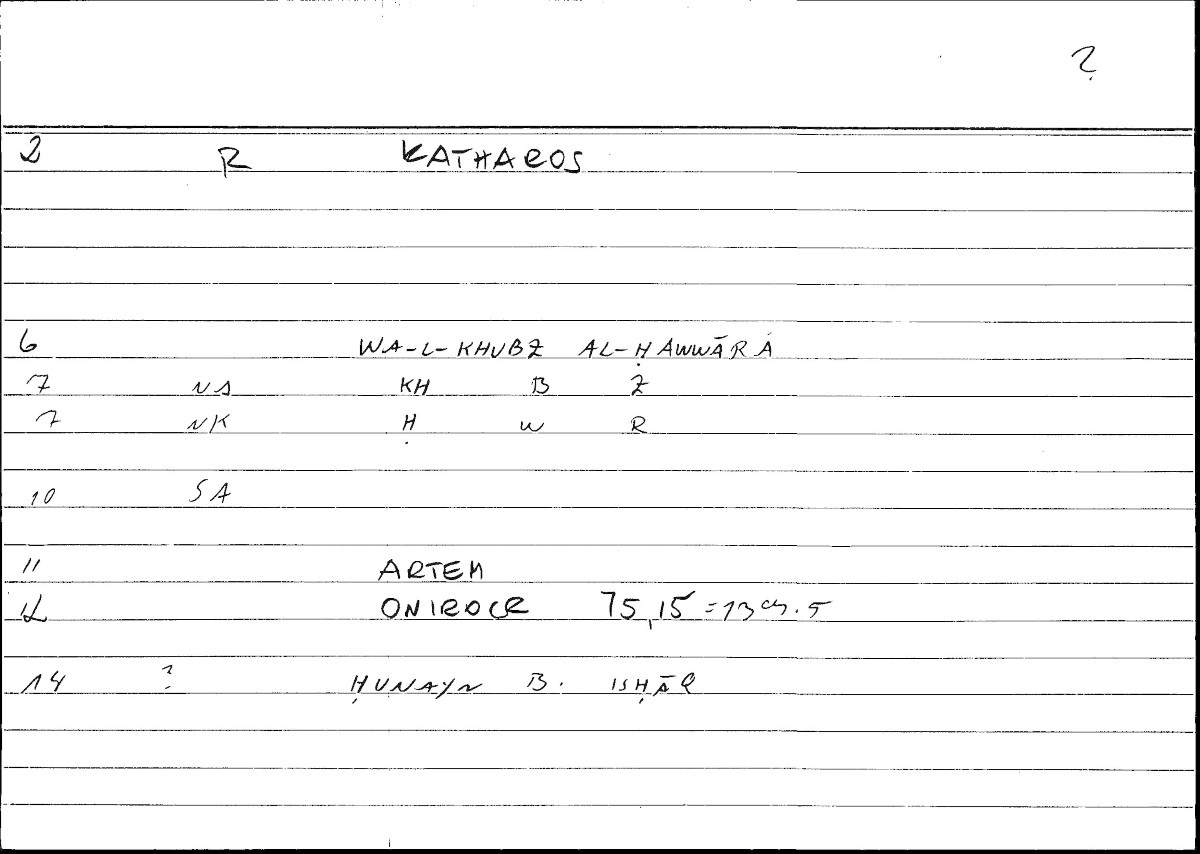 ?
2 R KATHAROS
6 WA-L-KHUBZ AL-ḤAWWĀRĀ
7 NS KH B Z
7 NK Ḥ W R
10 SA
11 ARTEM
12 ONIROCR 75,15 =
14 ? ḤUNAYN B. ISḤĀQ